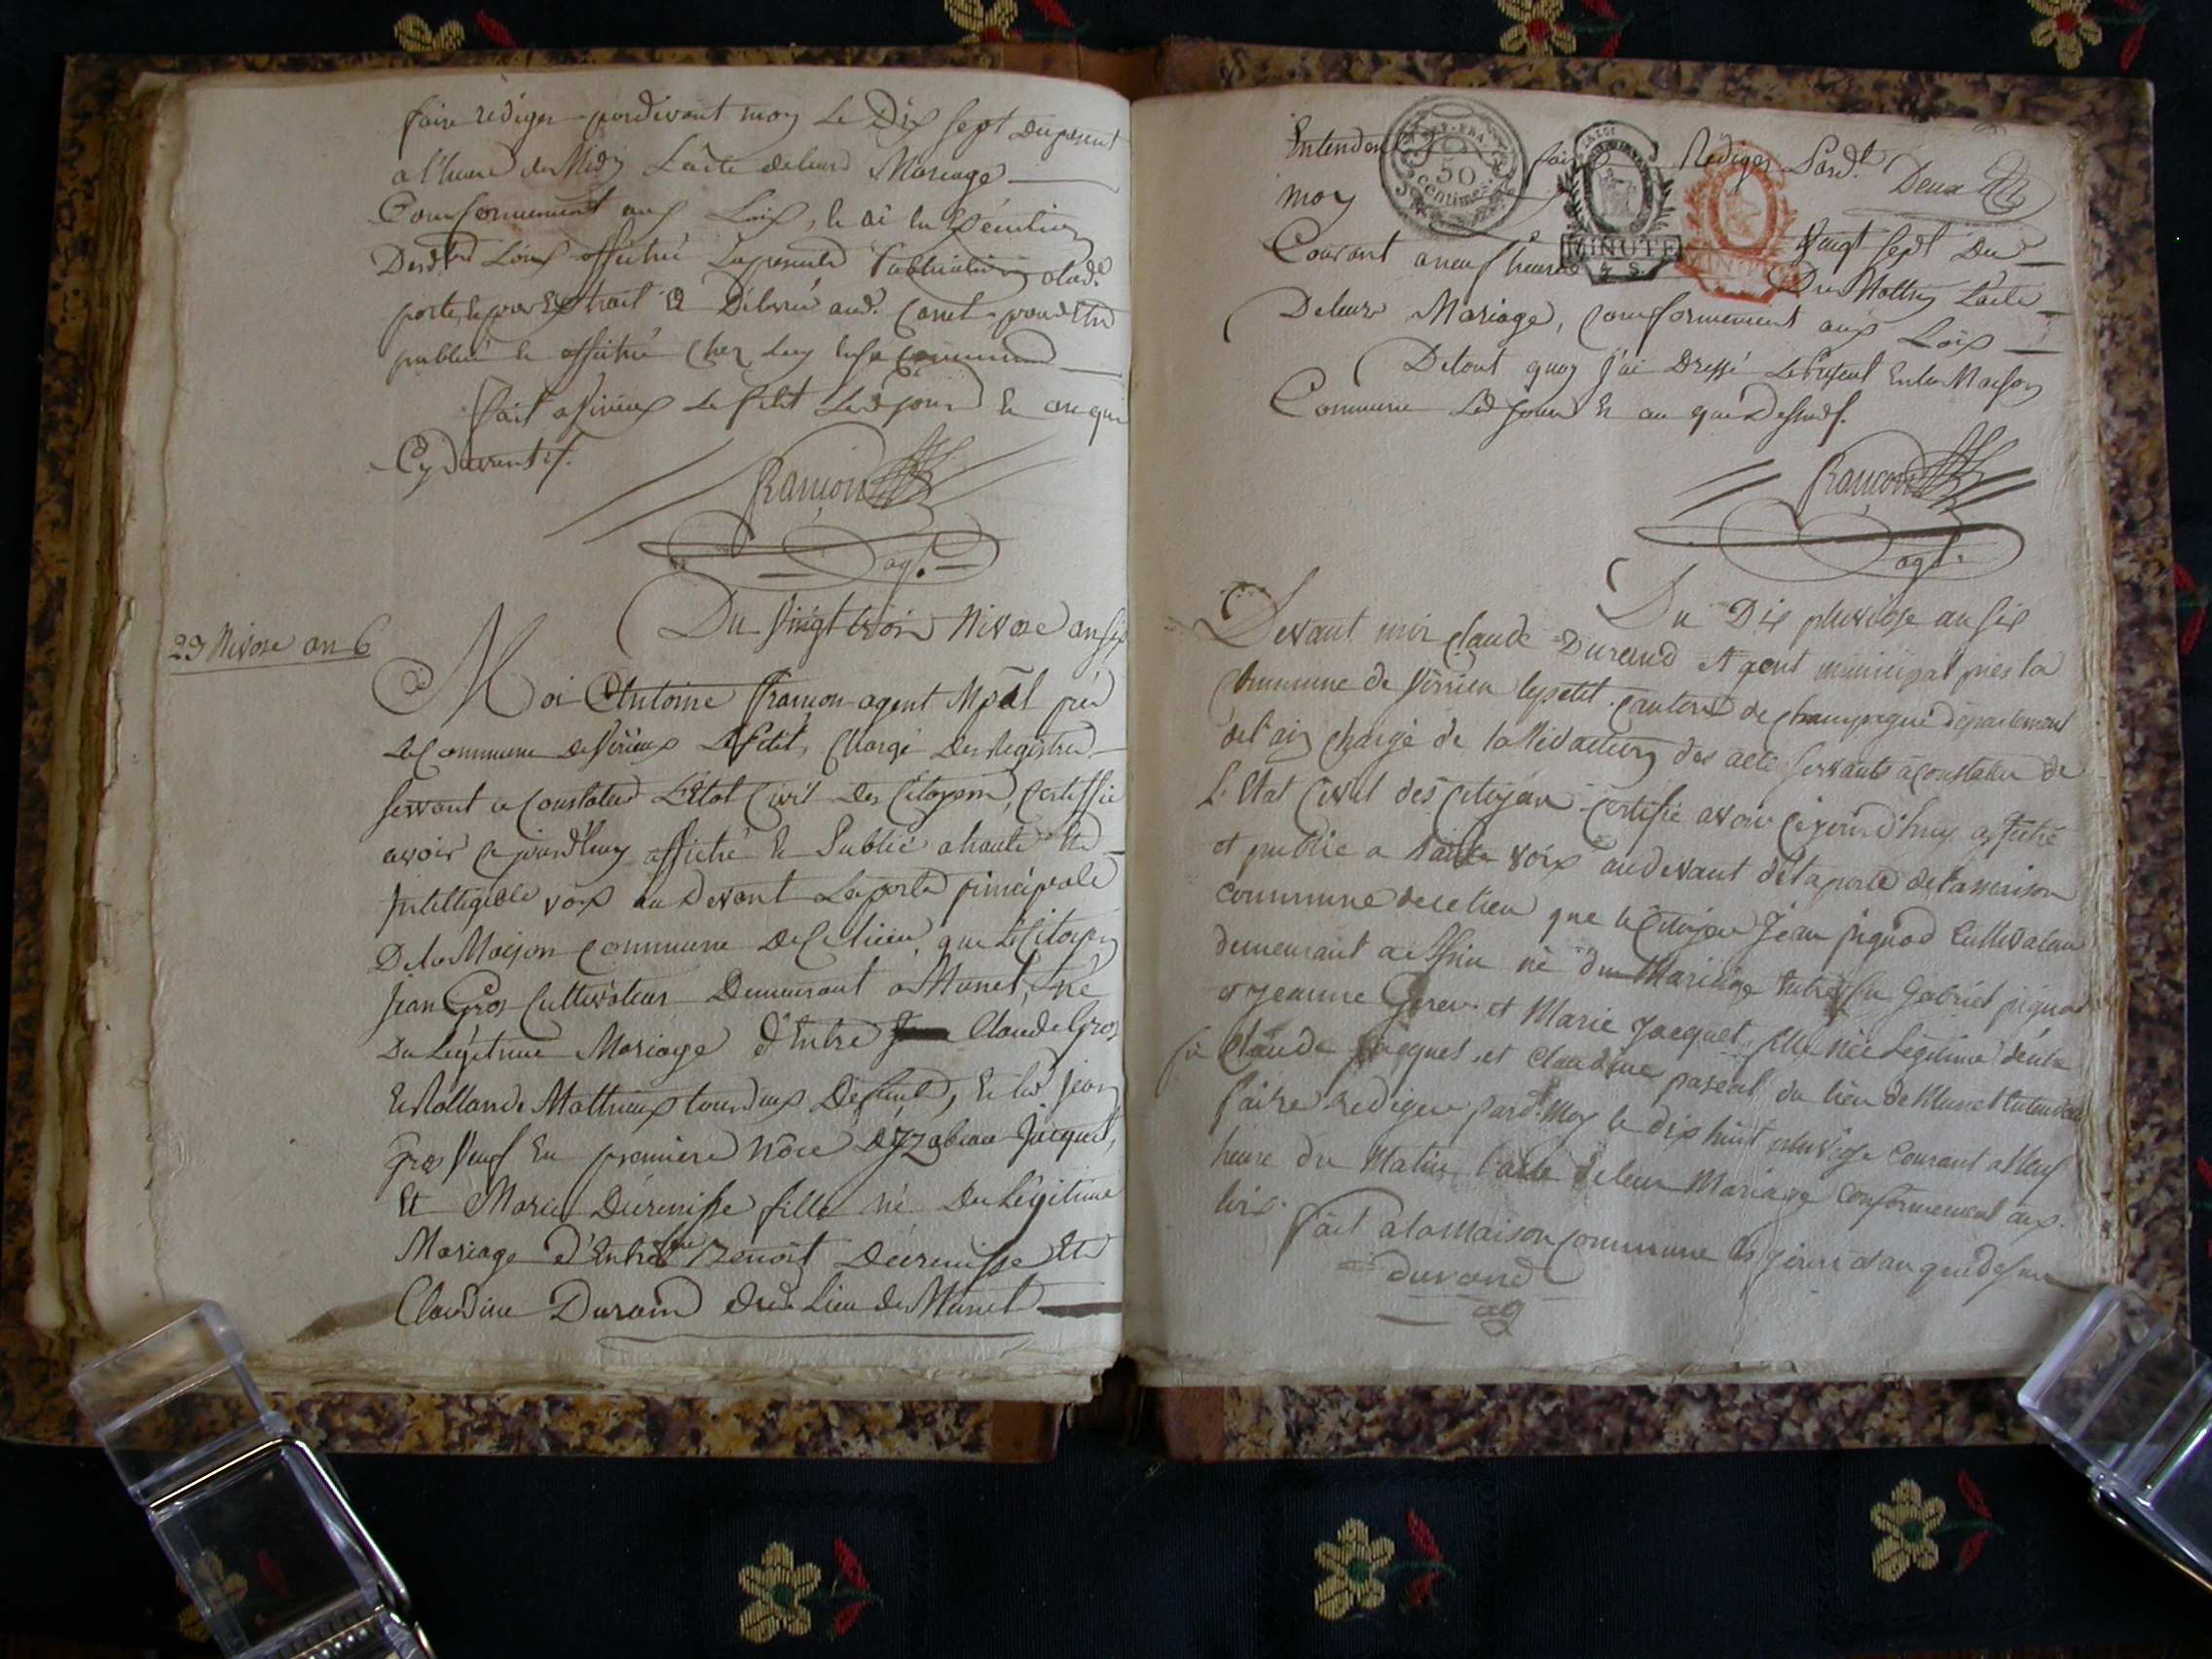 faire rediger pardevant moy Le Dix sept du present
a l'heure de Midy L'acte de leurd Mariage
Conformement aux Loix, le ai en Execution
Desd. Loix affiché La presente Publication alad.
porte, le pour Extrait Délivré aud. Canet pour Etre
publié & affiché Chez Luy
Fait a Virieux Le Petit Led. jour & an que
Cy devant
Francon
agt.
Du Vingt trois Nivose an six
23 Nivose an 6
Moi Antoine Francon agent Mpal près
La Commune de Virieux Le Petit, Chargé Des Registres
servant a Constater L'Etat Civil Des Citoyens, Certiffie
avoir ce jourd'huy affiché & Publié a haute Et
Intelligible voix au Devant La porte principale
De la Maison Commune De Ce Lieu, que Le Citoyen
Jean Gros Cultivateur Demeurant à Munet, né
Du Légitime Mariage d'Entre Claude Gros
& Rollande Mathieux tous deux Défunts, & led Jean
Gros Veuf En première Nôce D'Yzabeau Jacquet,
Et Marie Décrenisse fille né Du Légitime
Mariage d'Entre feu Benoit Décrenisse Et
Claudine Durand dud. Lieu de Munet
Entendent faire Rediger Pard.t Deux
50
Centimes
MINUTE
MINUTE
moy
Vingt sept Du
Courant a neuf heures Du Mattin L'acte
De leur Mariage, Conformement aux Loix
De tout quoy j'ai Dressé Le Présent En la Maison
Commune Led jour & an que Dessus.
Francon
agt.
Du Dix pluviose an six
Devant moi Claude Durand Agent municipal près la
Commune de Virrieu le petit canton de Champagne département
de l'ain chargé de la Redaction des acte servants a Constater de
L'Etat Civil des Citoyen certifie avoir cejourd'huy affiché
et publié a haute voix au devant de la porte de la maison
commune de ce lieu que le Citoyen Jean pignod Cultivateur
demeurant a né du Mariage Entre feu Gabriel pignod
et jeanne et Marie Jacquet fille née Légitime d'entre
fû Claude Jacquet et Claudine pascal du lieu de Munet Entendent
faire rediger pard.t Moy le dix huit pluviose Courant a Neuf
heure du Matin l'acte de leur Mariage Conformement aux
loix. fait a la Maison Commune les jour et an que dessus
durand
ag